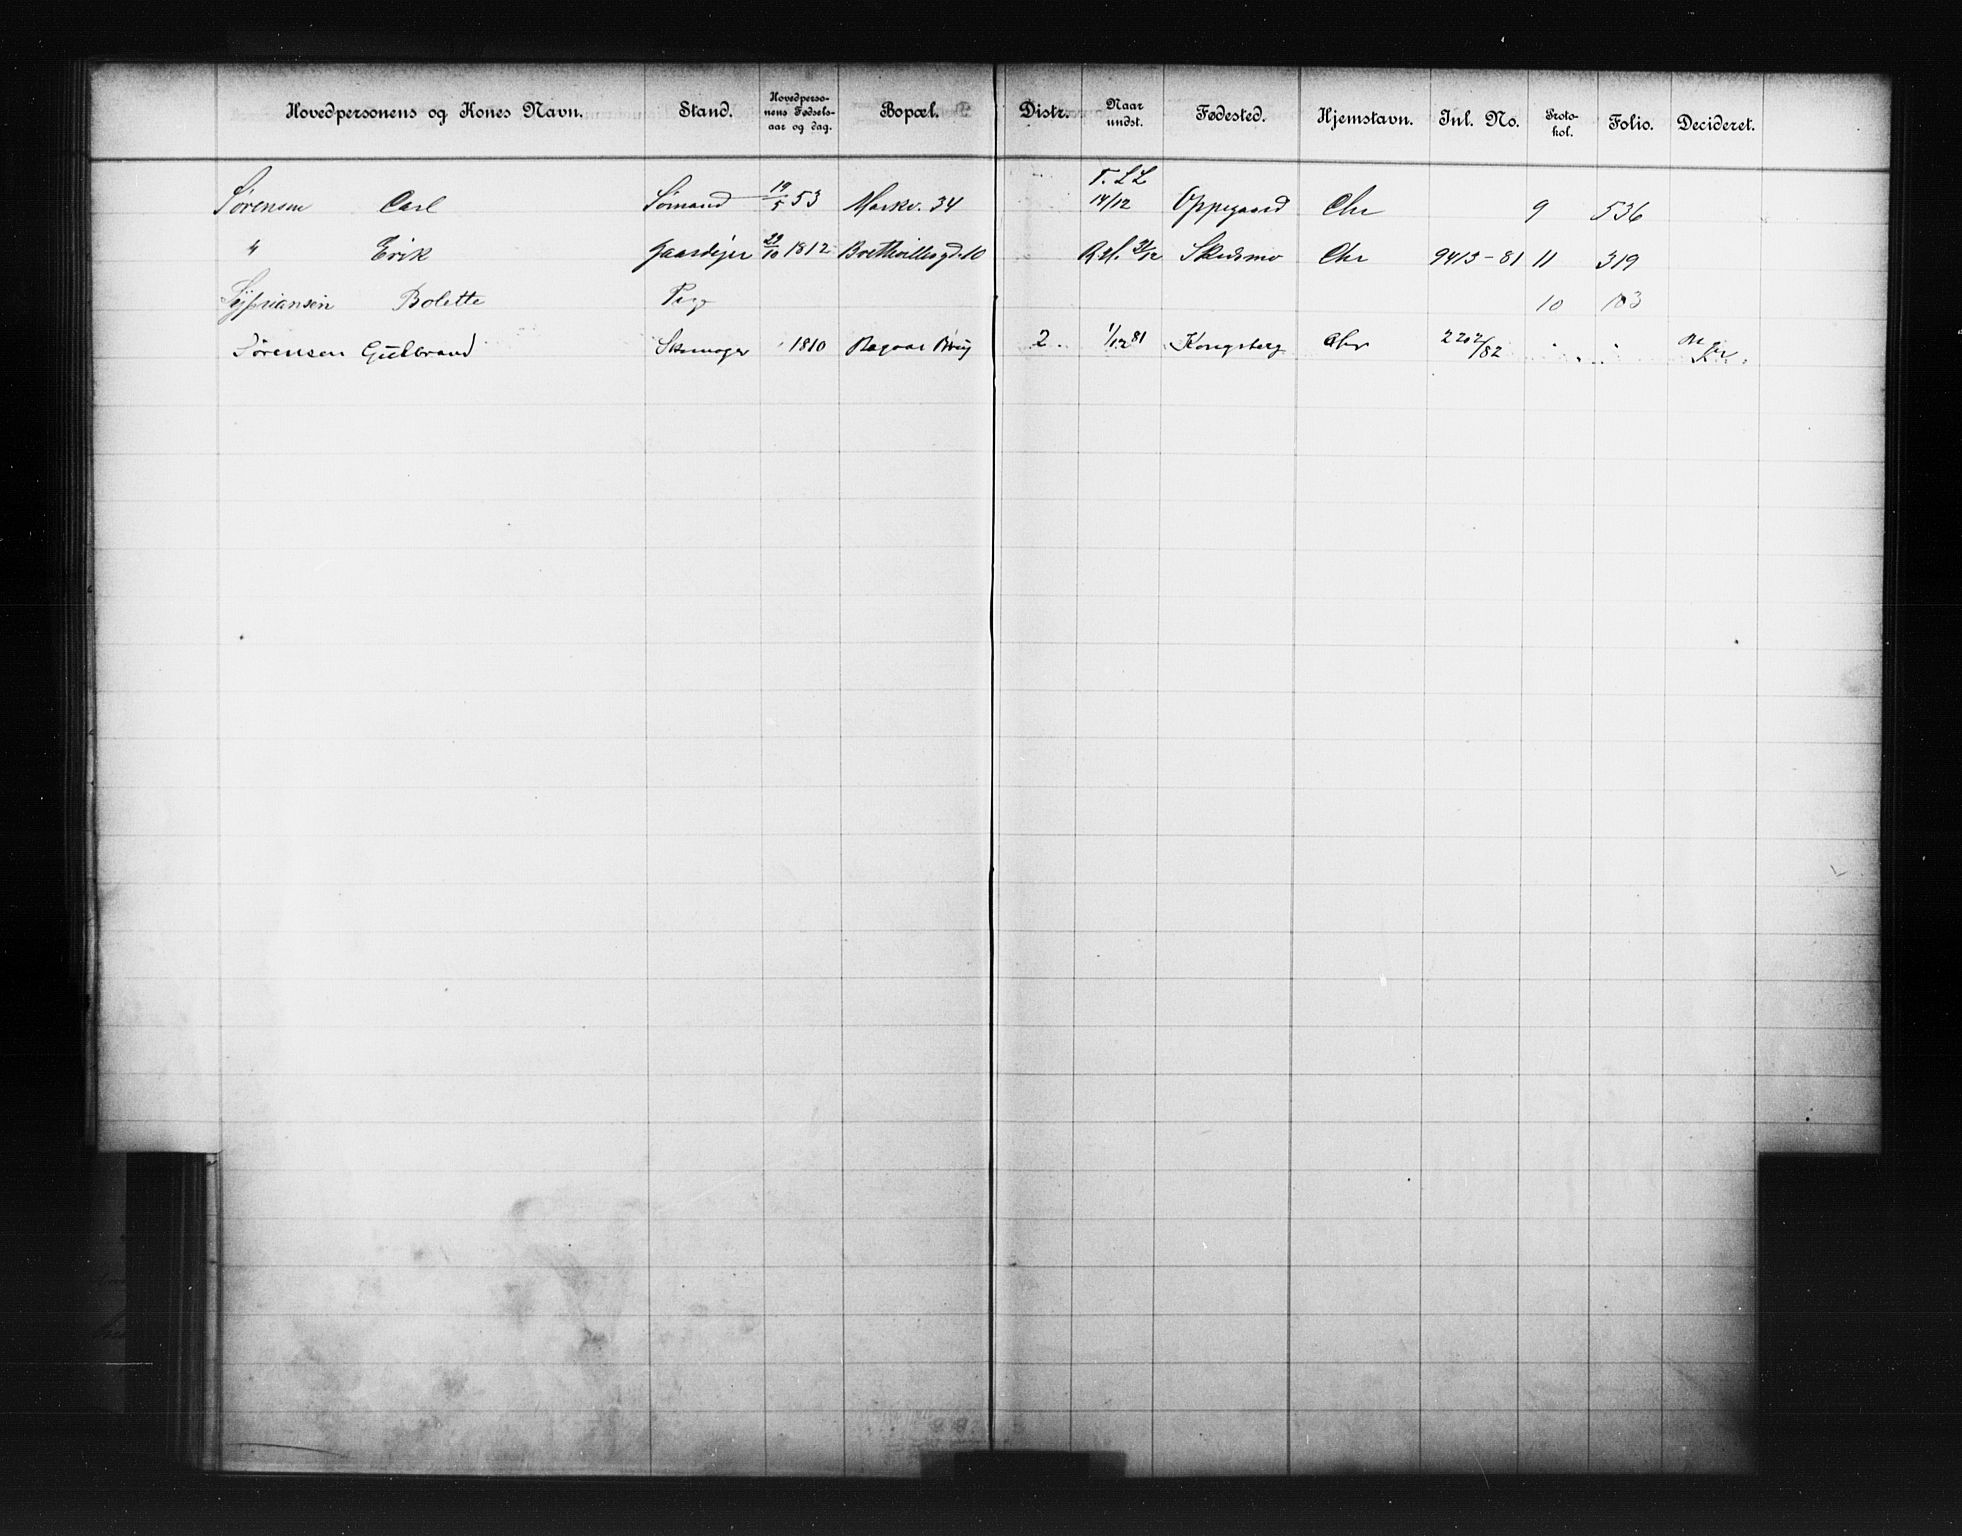 Hovedpersonens og Kones Navn. Stand. Hovedpersonens Fødselsaar og dag. Bopæl. Distr. Naar undst. Fødested. Hjemstavn. Inl. No. Protokol. Folio. Decideret.
Sørensen Carl Sømand 19/5 53 Markv. 34 F. LL 14/12 Oppegaard Chr 9 536
" Erik Gaardejer 29/10 1812 10 31/12 Skedsmo Chr 9413-81 11 319
Bolette Pige 10 103
Sørensen Gulbrand Skomager 1810 2. 1/12 81 Kongsberg Chr 2202/82